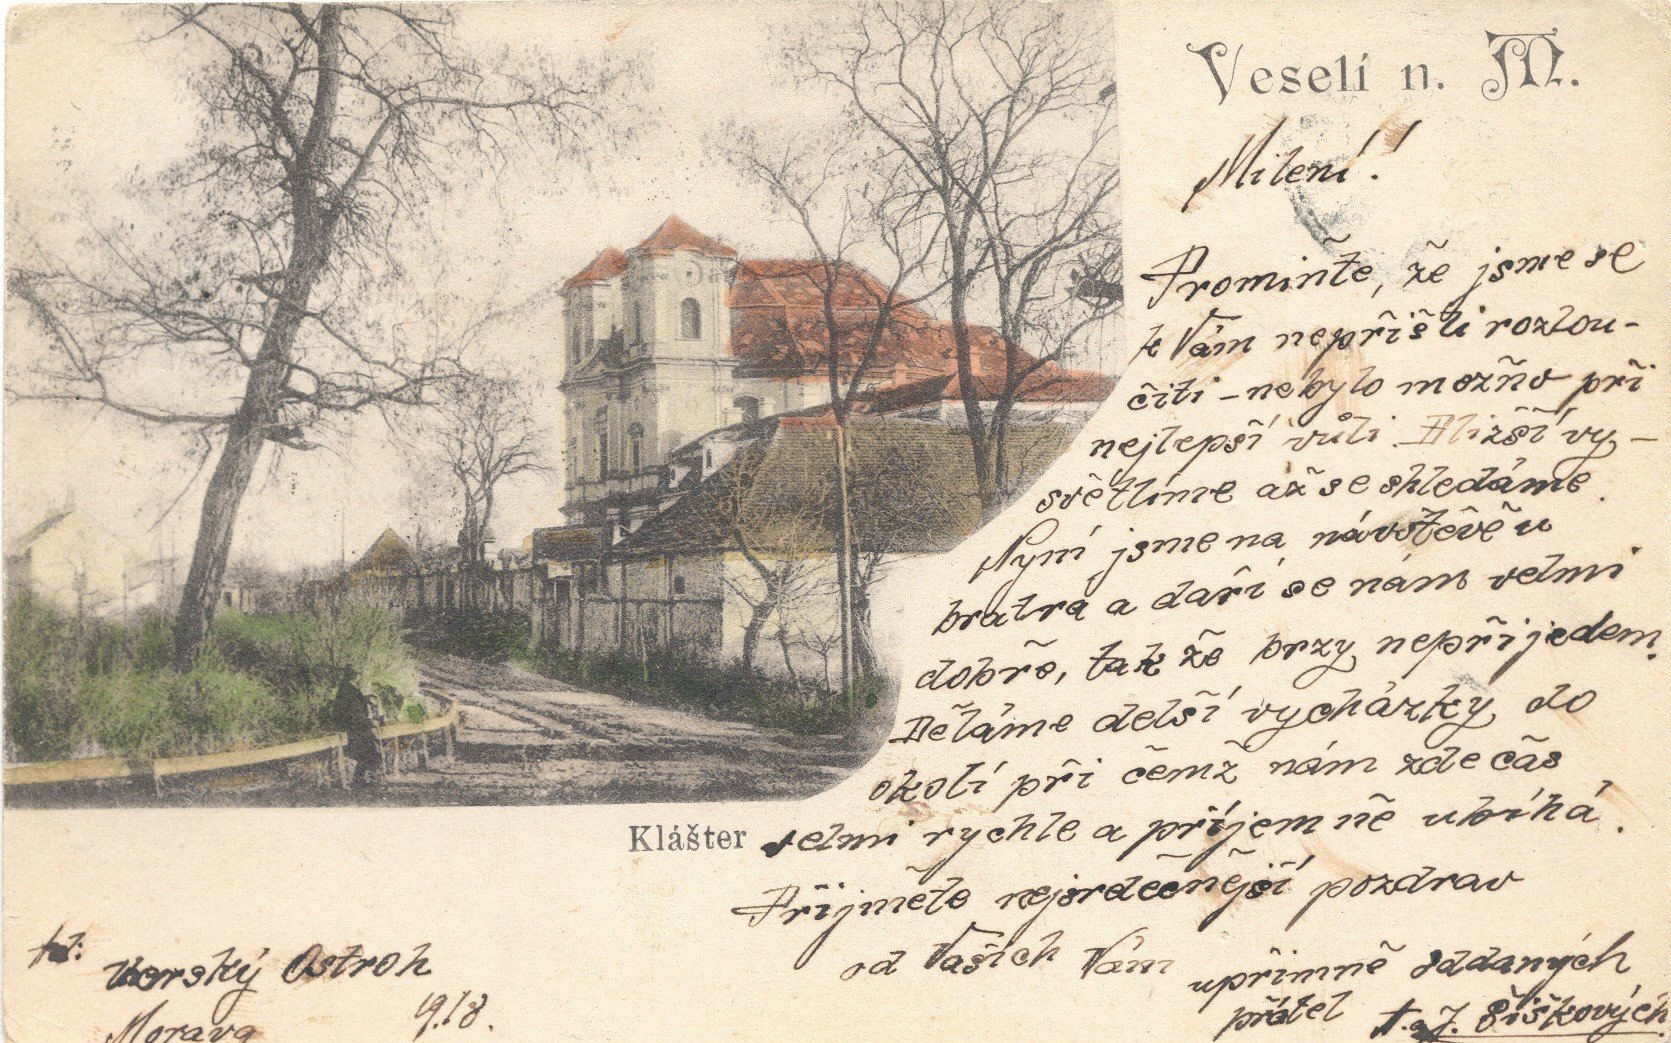 Veselí n. M.
Milení!
Prominťe, že jsme se
k Vám nepřišli rozlou-
čiti – nebylo možno při
nejlepší vůli. Bližší vy-
světlíme až se shledáme.
Nyní jsme na návštěvě u
bratra a daří se nám velmi
dobře, tak že brzy nepřijedem.
Děláme delší vycházky do
okolí při čemž nám zde čas
velmi rychle a příjemně ubíhá.
Přijměte nejsrdečnější pozdrav
od Vašich Vám
upřimně oddaných
přátel A. a J. Šiškových.
Klášter
Uherský Ostroh
Morava 19./8.